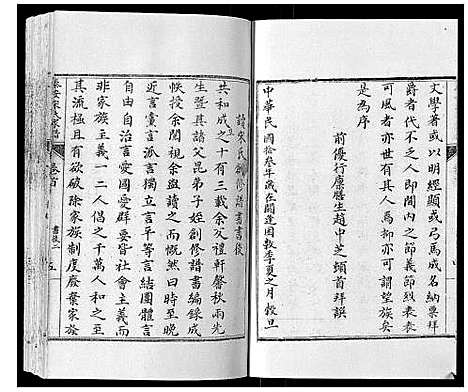 文學著或以明經顯或弓馬成名納粟拜
爵者代不乏人即閨內之節義節烈表表
可風者亦世有其人焉抑亦可謂望族矣
是為序
前優行廩膳生趙中芝頫首拜譔
中華民國拾叁年歲在閼逢困敦季夏之月榖旦
讀宋氏創修譜書書後
共和成立之十有三載余小樓禮軒馨秋雨先
生暨其諸父昆弟子姪創修譜書編錄成
恢授余閱視余盥讀之而慨然曰時至晚
近言黨言派言獨立言平等言結團體言
自由自治言愛國愛群要皆社會主義而
非家族主義一二人倡之千萬人和之甚
其流極且有欲破除家族制度廢棄家族
卷首
書後二
五